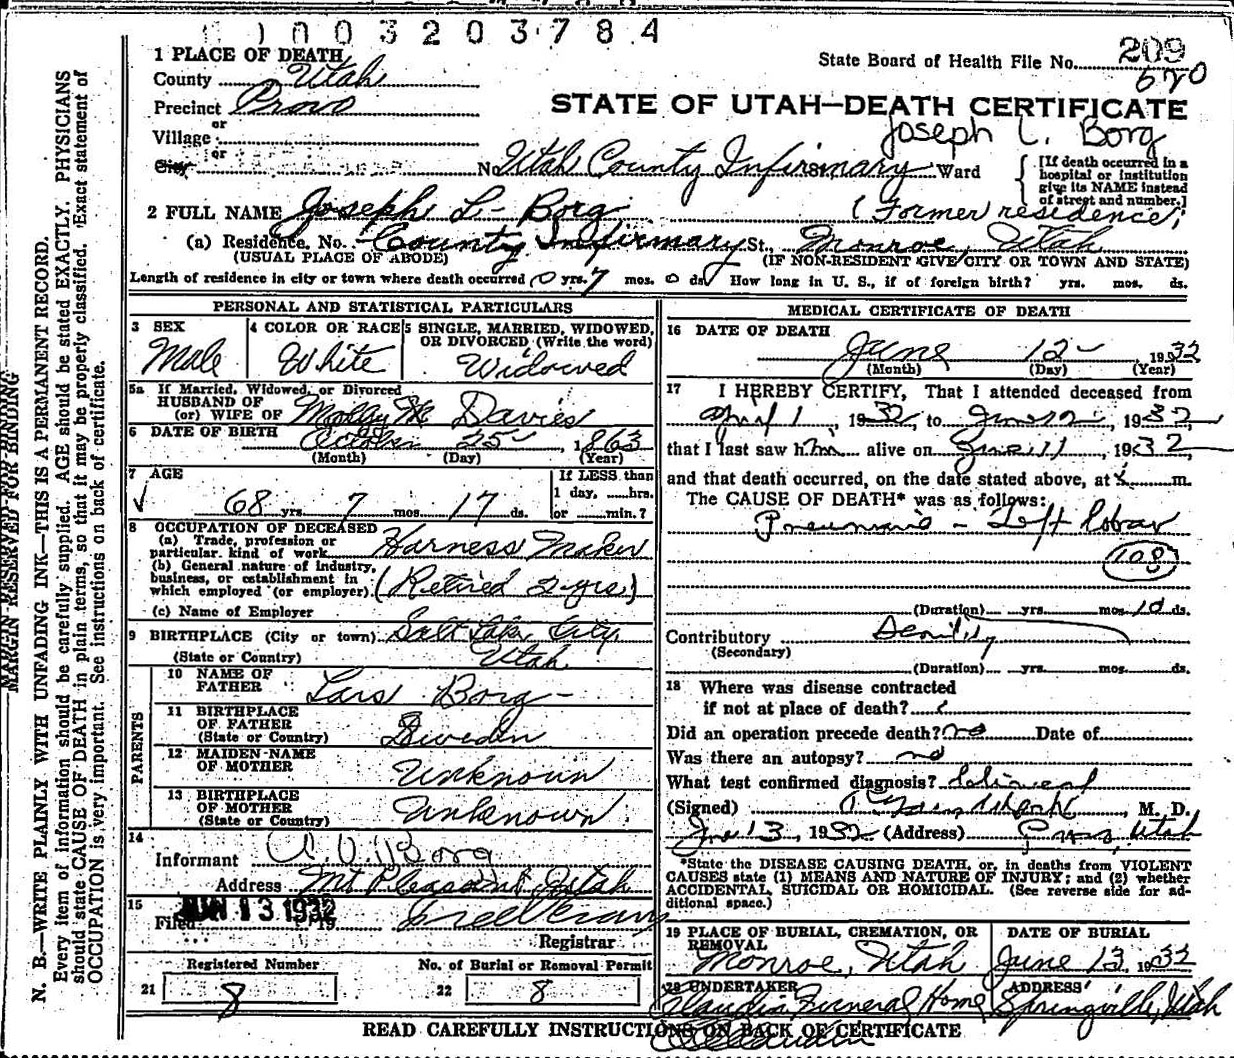 1003203784
1 PLACE OF DEATH
County Utah
Precinct Provo
or
Village
or
City
State Board of Health File No. 209
620
STATE OF UTAH—DEATH CERTIFICATE
Joseph L. Borg
No Utah County Infirmary Ward
[If death occurred in a
hospital or institution
give its NAME instead
of street and number.]
2 FULL NAME Joseph L. Borg (Former residence,
(a) Residence. No. County Infirmary St., Monroe, Utah
(USUAL PLACE OF ABODE) (IF NON-RESIDENT GIVE CITY OR TOWN AND STATE)
Length of residence in city or town where death occurred 0 yrs. 7 mos. 0 ds. How long in U. S., if of foreign birth? yrs. mos. ds.
PERSONAL AND STATISTICAL PARTICULARS
3 SEX
Male
4 COLOR OR RACE
White
5 SINGLE, MARRIED, WIDOWED,
OR DIVORCED (Write the word)
Widowed
5a If Married, Widowed, or Divorced
HUSBAND OF
(or) WIFE OF Molly M. Davies
6 DATE OF BIRTH October 25 1863
(Month) (Day) (Year)
7 AGE
68 yrs. 7 mos. 17 ds.
If LESS than
1 day, ......hrs.
or ......min.?
8 OCCUPATION OF DECEASED
(a) Trade, profession or
particular kind of work Harness Maker
(b) General nature of industry,
business, or establishment in
which employed (or employer) (Retired 2 yrs)
(c) Name of Employer
9 BIRTHPLACE (City or town) Salt Lake City
(State or Country) Utah
PARENTS
10 NAME OF
FATHER Lars Borg
11 BIRTHPLACE
OF FATHER
(State or Country) Sweden
12 MAIDEN NAME
OF MOTHER Unknown
13 BIRTHPLACE
OF MOTHER
(State or Country) Unknown
14
Informant Borg
Address Mt Pleasant, Utah
15
Filed JUN 13 1932, 19
Registrar
Registered Number
21 8
No. of Burial or Removal Permit
22 8
MEDICAL CERTIFICATE OF DEATH
16 DATE OF DEATH
June 12, 1932
(Month) (Day) (Year)
17 I HEREBY CERTIFY, That I attended deceased from
April 1, 1932, to June 12, 1932,
that I last saw him alive on June 11, 1932,
and that death occurred, on the date stated above, at m.
The CAUSE OF DEATH* was as follows:
Pneumonia - Left lobar
108
(Duration) yrs. mos. 10 ds.
Contributory Senility
(Secondary)
(Duration) yrs. mos. ds.
18 Where was disease contracted
if not at place of death?
Did an operation precede death? no Date of
Was there an autopsy? no
What test confirmed diagnosis? Clinical
(Signed) , M. D.
June 13, 1932 (Address) Provo, Utah
*State the DISEASE CAUSING DEATH, or, in deaths from VIOLENT
CAUSES state (1) MEANS AND NATURE OF INJURY; and (2) whether
ACCIDENTAL, SUICIDAL OR HOMICIDAL. (See reverse side for ad-
ditional space.)
19 PLACE OF BURIAL, CREMATION, OR
REMOVAL
Monroe, Utah
DATE OF BURIAL
June 13, 1932
20 UNDERTAKER
Claudin Funeral Home
ADDRESS
Springville, Utah
READ CAREFULLY INSTRUCTIONS ON BACK OF CERTIFICATE
MARGIN RESERVED FOR BINDING
N. B.—WRITE PLAINLY WITH UNFADING INK—THIS IS A PERMANENT RECORD.
Every item of information should be carefully supplied. AGE should be stated EXACTLY. PHYSICIANS
should state CAUSE OF DEATH in plain terms, so that it may be properly classified. Exact statement of
OCCUPATION is very important. See instructions on back of certificate.